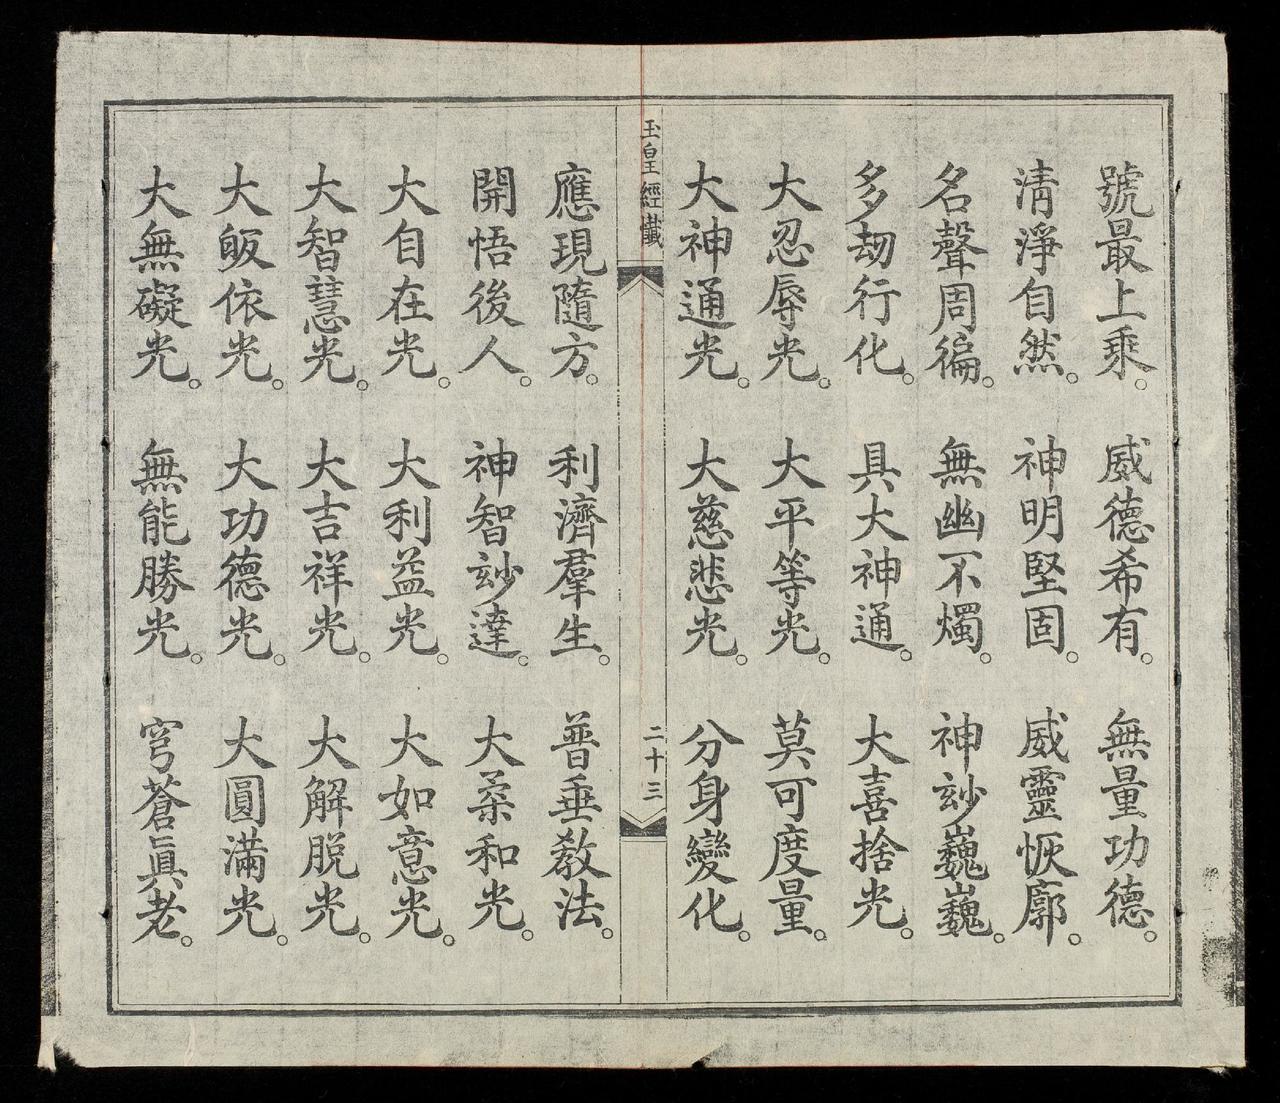 號最上乘。威德希有。無量功德。
清淨自然。神明堅固。威靈恢廓。
名聲周徧。無幽不燭。神玅巍巍。
多刼行化。具大神通。大喜捨光。
大忍辱光。大平等光。莫可度量。
大神通光。大慈悲光。分身變化。
玉皇經懺
二十三
應現隨方。利濟羣生。普垂敎法。
開悟後人。神智玅達。大柔和光。
大自在光。大利益光。大如意光。
大智慧光。大吉祥光。大解脫光。
大皈依光。大功德光。大圓滿光。
大無礙光。無能勝光。穹蒼眞老。